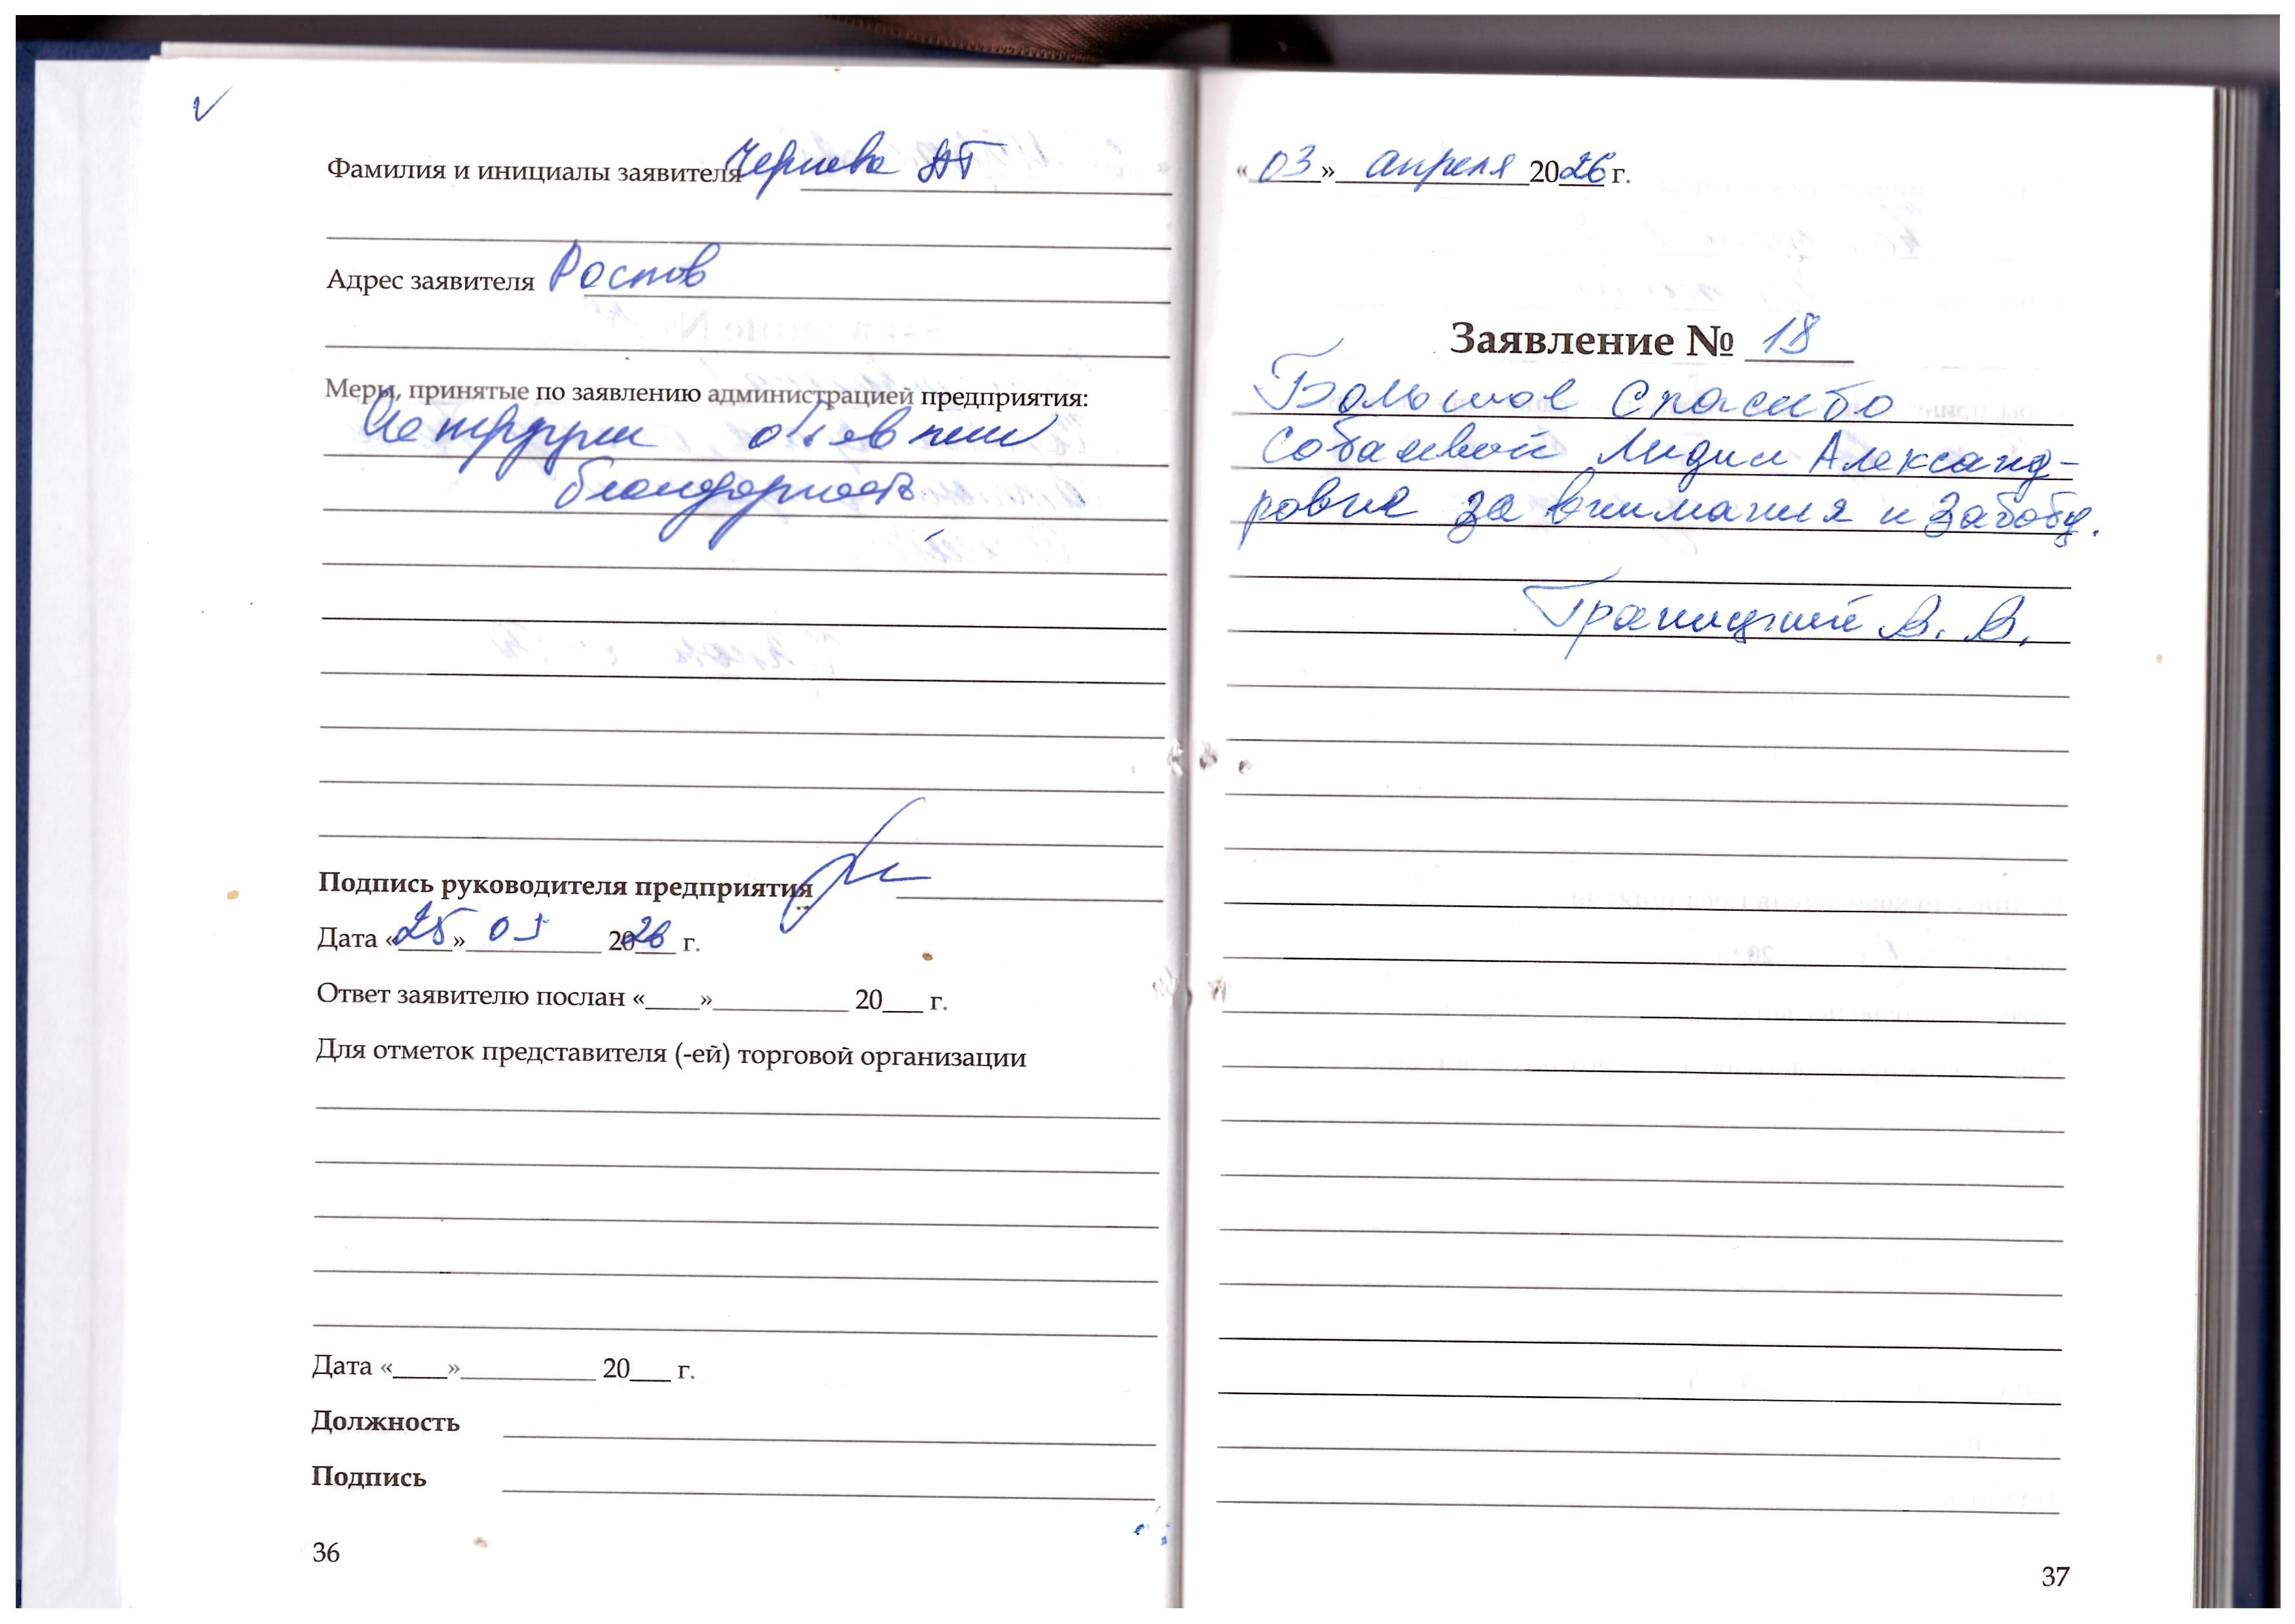 Фамилия и инициалы заявителя Чернова АГ
Адрес заявителя Ростов
Меры, принятые по заявлению администрацией предприятия:
объявлена
благодарность
Подпись руководителя предприятия
Дата «25» 03 2026 г.
Ответ заявителю послан «____»__________ 20___ г.
Для отметок представителя (-ей) торговой организации
Дата «____»__________ 20___ г.
Должность
Подпись
36
«03» апреля 2026 г.
Заявление № 18
Большое спасибо
Лидии Александ-
ровне за внимания и заботу.
Границкий В. В.
37